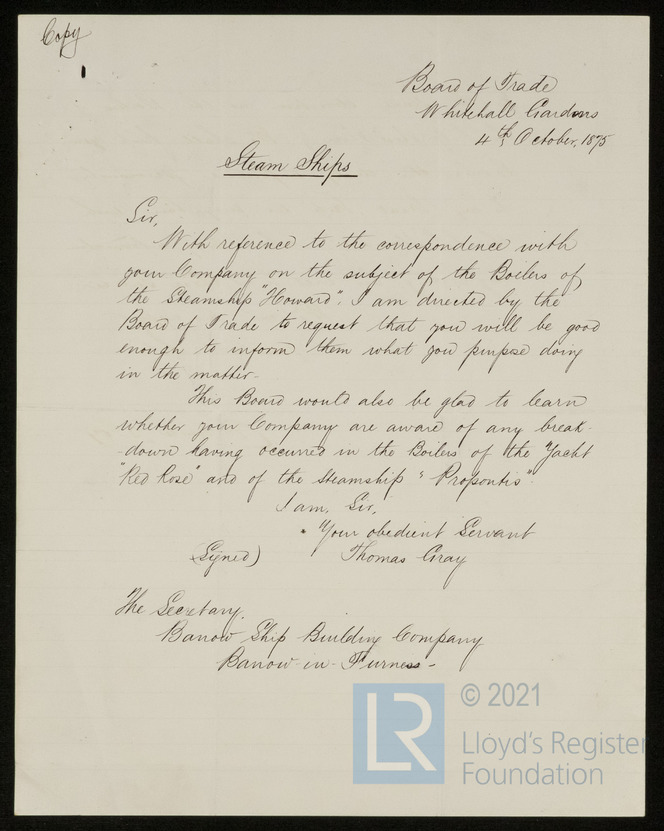 Copy
Board of Trade
Whitehall Gardens
4th October, 1875
Steam Ships
Sir,
With reference to the correspondence with
your Company on the subject of the Boilers of
the Steamship "Howard", I am directed by the
Board of Trade to request that you will be good
enough to inform them what you purpose doing
in the matter-
This Board would also be glad to learn
whether your Company are aware of any break-
-down having occurred in the Boilers of the Yacht
"Red Rose" and of the Steamship "Propontis".
I am, Sir,
Your obedient Servant
(Signed) Thomas Gray
The Secretary.
Barrow Ship Building Company
Barrow-in-Furness-
LR
© 2021
Lloyd's Register
Foundation